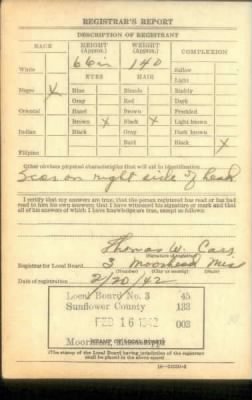 REGISTRAR'S REPORT
DESCRIPTION OF REGISTRANT
RACE HEIGHT (Approx.) WEIGHT (Approx.) COMPLEXION
66 in 140
White Sallow
EYES HAIR Light
Negro X Blue Blonde Ruddy
Gray Red Dark
Oriental Hazel Brown Freckled
Brown X Black X Light brown
Indian Black Gray Dark brown
Bald Black X
Filipino
Other obvious physical characteristics that will aid in identification
Scar on right side of head
I certify that my answers are true; that the person registered has read or has had
read to him his own answers; that I have witnessed his signature or mark and that
all of his answers of which I have knowledge are true, except as follows:
Thomas W.
(Signature of registrar)
Registrar for Local Board 3 Moorhead Miss
(Number) (City or county) (State)
Date of registration 2/20/42
Local Board No. 3 45
Sunflower County 133
FEB 16 1942 003
STAMP OF LOCAL BOARD
(The stamp of the Local Board having jurisdiction of the registrant
shall be placed in the above space)